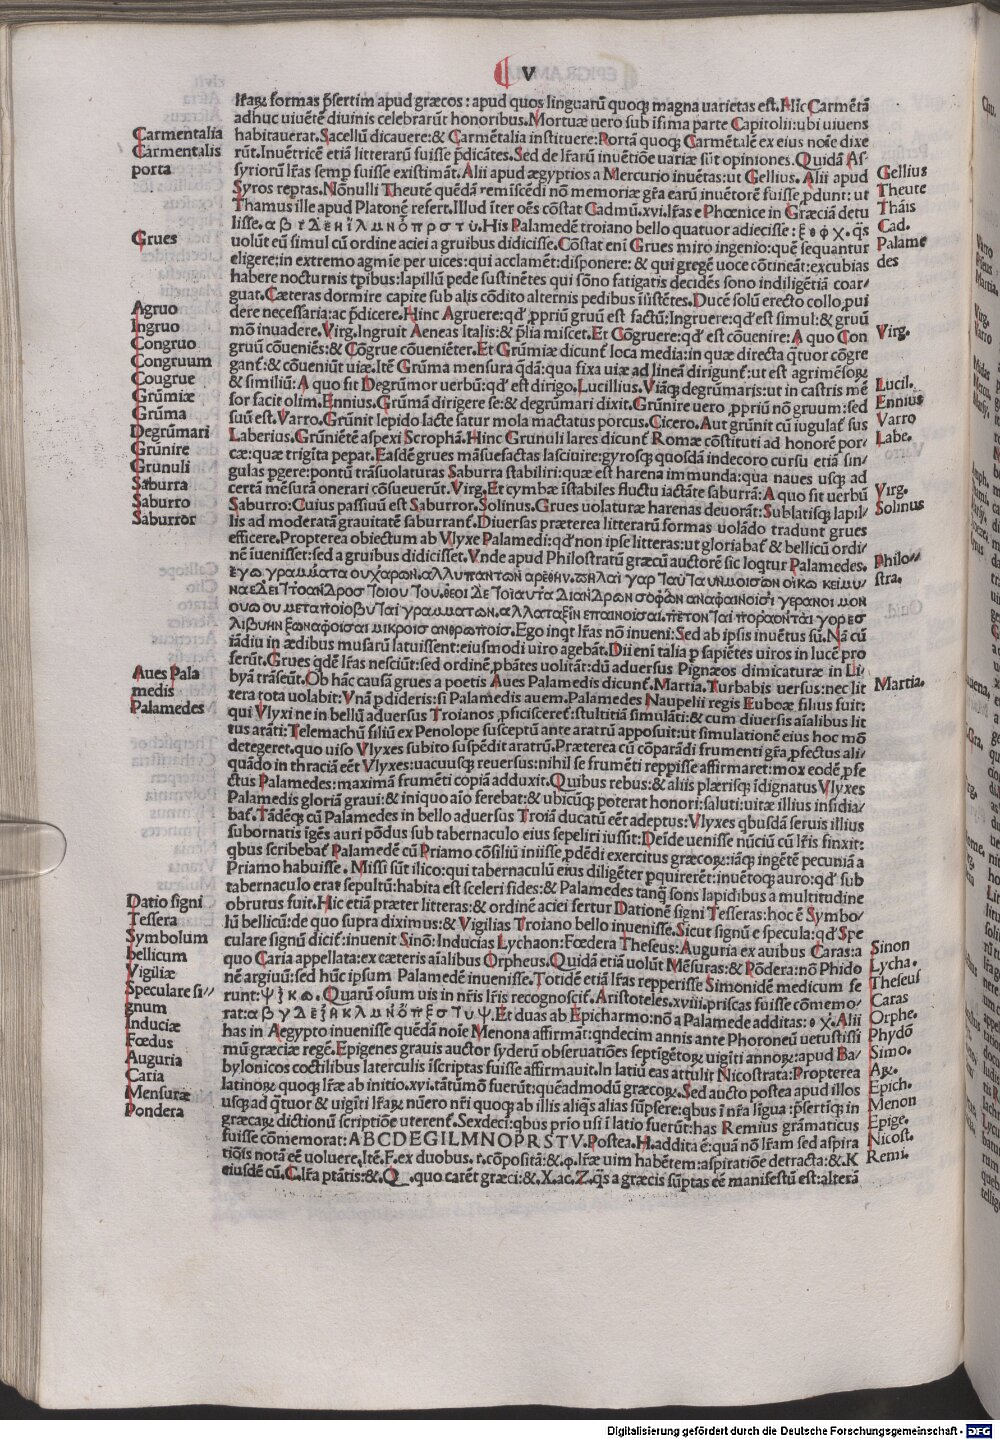 V
lr̃aꝝ formas p̃sertim apud græcos : apud quos linguarũ quoqꝫ magna uarietas est. Hic Carmẽtã
adhuc uiuẽtẽ diuinis celebrarũt honoribus. Mortuæ uero sub ĩfima parte Capitolii: ubi uiuens
habitauerat. Sacellũ dicauere: & Carmẽtalia instituere: Portã quoqꝫ Carmẽtalẽ ex eius noĩe dixe
rũt. Inuẽtricẽ etiã litterarũ fuisse p̃dicãtes. Sed de lr̃arũ inuẽtiõe uariæ sũt opiniones. Quidã As/
syriorũ lr̃as semp̃ fuisse existimãt. Alii apud ægyptios a Mercurio inuẽtas: ut Gellius. Alii apud
Syros reptas. Nõnulli Theutẽ quẽdã remiscẽdi nõ memoriæ gr̃a earũ inuẽtorẽ fuisse ꝓdunt: ut
Thamus ille apud Platonẽ refert. Illud ĩter oẽs cõstat Cadmũ. xvi. lr̃as e Phœnice in Græciã detu
lisse. α β γ Δ ε η ι λ μ ν ο π ρ σ τ υ. His Palamedẽ troiano bello quatuor adiecisse : ξ θ φ χ. q̃s
uolũt eũ simul cũ ordine aciei a gruibus didicisse. Cõstat enĩ Grues miro ingenio: quẽ sequantur
eligere: in extremo agmĩe per uices: qui acclamẽt: disponere: & qui gregẽ uoce cõtineãt: excubias
habere nocturnis tp̃ibus: lapillũ pede sustinẽtes qui sõno fatigatis decidẽs sono indiligẽtiã coar/
guat. Cæteras dormire capite sub alis cõdito alternis pedibus ĩisistẽtes. Ducẽ solũ erecto collo ꝓui
dere necessaria: ac p̃dicere. Hinc Agruere: qd̕ ꝓpriũ gruũ est factũ: Ingruere: qd̕ est simul: & gruũ
mõ inuadere. Virg. Ingruit Aeneas Italis: & p̃lia miscet. Et Cõgruere: qd̕ est cõuenire: A quo Con
gruũ cõueniẽs: & Cõgrue cõueniẽter. Et Grũmiæ dicunt̃ loca media: in quæ directa q̃tuor cõgre
gant̃: & cõueniũt uiæ. Itẽ Grũma mensura q̃dã: qua fixa uiæ ad lineã dirigunt̃: ut est agrimẽsoꝝ
& similiũ: A quo fit Degrũmor uerbũ: qd̕ est dirigo. Lucillius. Viãqꝫ degrũmaris: ut in castris mẽ
sor facit olim. Ennius. Grũmã dirigere se: & degrũmari dixit. Grũnire uero ꝓpriũ nõ gruum: sed
suũ est. Varro. Grũnit lepido lacte satur mola mactatus porcus. Cicero. Aut grũnit cũ iugulat̃ sus
Laberius. Grũniẽtẽ aspexi Scrophã. Hinc Grunuli lares dicunt̃ Romæ cõstituti ad honorẽ por/
cæ: quæ trigĩta pepat. Easdẽ grues mãsuefactas lasciuire: gyrosqꝫ quosdã indecoro cursu etiã sin/
gulas pgere: pontũ trãsuolaturas Saburra stabiliri: quæ est harena immunda: qua naues usqꝫ ad
certã mẽsurã onerari cõsueuerũt. Virg. Et cymbæ ĩstabiles fluctu iactãte saburrã: A quo fit uerbũ
Saburro: Cuius passiuũ est Saburror. Solinus. Grues uolaturæ harenas deuorãt: Sublatisqꝫ lapil/
lis ad moderatã grauitatẽ saburrant̃. Diuersas præterea litterarũ formas uolãdo tradunt grues
efficere. Propterea obiectum ab Vlyxe Palamedi: qd̕ non ipse litteras: ut gloriabat̃ & bellicũ ordi/
nẽ ĩuenisset: sed a gruibus didicisset. Vnde apud Philostratũ græcũ auctorẽ sic loq̃tur Palamedes.
lr̃as nõ inueni: Sed ab ipsis inuẽtus sũ. Nã cũ
iãdiu in ædibus musarũ latuissent: eiusmodi uiro agebãt. Dii enĩ talia p sapiẽtes uiros in lucẽ pro
ferũt. Grues q̃dẽ lr̃as nesciũt: sed ordinẽ ꝓbãtes uolitãt: dũ aduersus Pigmæos dimicaturæ in Li/
byã trãseũt. Ob hãc causã grues a poetis Aues Palamedis dicunt̃. Martia. Turbabis uersus: nec lit
tera tota uolabit: Vnã ꝑdideris: si Palamedis auem. Palamedes Naupelii regis Euboæ filius fuit:
qui Vlyxi ne in bellũ aduersus Troianos ꝓficisceret̃: stultitiã simulãti: & cum diuersis aĩalibus lit
tus arãti: Telemachũ filiũ ex Penolope susceptũ ante aratrũ apposuit: ut simulationẽ eius hoc mõ
detegeret. quo uiso Vlyxes subito suspẽdit aratrũ. Præterea cũ cõparãdi frumenti gr̃a ꝓfectus ali/
quãdo in thraciã eẽt Vlyxes: uacuusqꝫ reuersus: nihil se frumẽti reppisse affirmaret: mox eodẽ ꝓfe
ctus Palamedes: maximã frumẽti copiã adduxit. Quibus rebus: & aliis plærisqꝫ ĩdignatus Vlyxes
Palamedis gloriã graui: & iniquo aĩo ferebat: & ubicũqꝫ poterat honori: saluti: uitæ illius insidia/
bat̃. Tãdẽqꝫ cũ Palamedes in bello aduersus Troiã ducatũ eẽt adeptus: Vlyxes q̃busdã seruis illius
subornatis ĩgẽs auri põdus sub tabernaculo eius sepeliri iussit: Deĩde uenisse nũciũ cũ lr̃is finxit:
q̃bus scribebat̃ Palamedẽ cũ Priamo cõsiliũ iniisse ꝓdẽdi exercitus græcoꝝ: iãqꝫ ingẽtẽ pecuniã a
Priamo habuisse. Missi sũt ilico: qui tabernaculũ eius diligẽter pquirerẽt: inuẽtoqꝫ auro: qd̕ sub
tabernaculo erat sepultũ: habita est sceleri fides: & Palamedes tanq̃ sons lapidibus a multitudine
obrutus fuit. Hic etiã præter litteras: & ordinẽ aciei fertur Dationẽ signi Tesseras: hoc ẽ Symbo/
lũ bellicũ: de quo supra diximus: & Vigilias Troiano bello inuenisse. Sicut signũ e specula: qd̕ Spe
culare signũ dicit̃: inuenit Sinõ: Inducias Lychaon: Fœdera Theseus: Auguria ex auibus Caras: a
quo Caria appellata: ex cæteris aĩalibus Orpheus. Quidã etiã uolũt Mẽsuras: & Põdera: nõ Phido
nẽ argiuũ: sed hũc ipsum Palamedẽ inuenisse. Totidẽ etiã lr̃as repperisse Simonidẽ medicum fe
runt: ψ ξ κ ω. Quarũ oĩum uis in nr̃is lr̃is recognoscit̃. Aristoteles. xviii. priscas fuisse cõmemo/
rat: α β γ Δ ε ζ ι κ λ μ ν ο π ρ σ τ υ ψ. Et duas ab Epicharmo: nõ a Palamede additas: θ χ. Alii
has in Aegypto inuenisse quẽdã noĩe Menona affirmãt: q̃ndecim annis ante Phoroneũ uetustissi
mũ græciæ regẽ. Epigenes grauis auctor syderũ obseruatiões septigẽtoꝝ uigĩti annoꝝ: apud Ba/
bylonicos coctilibus laterculis ĩscriptas fuisse affirmauit. In latiũ eas attulit Nicostrata: Propterea
latinoꝝ quoqꝫ lr̃æ ab initio. xvi. tãtũmõ fuerũt: quẽadmodũ græcoꝝ. Sed aucto postea apud illos
usqꝫ ad q̃tuor & uigĩti lr̃aꝝ nũero nr̃i quoqꝫ ab illis aliq̃s alias sũpsere: q̃bus ĩ nr̃a lĩgua : p̃sertĩqꝫ in
græcaꝝ dictionũ scriptiõe uterent̃. Sexdeci: q̃bus prio usi ĩ latio fuerũt: has Remius grãmaticus
fuisse cõmemorat: A B C D E G I L M N O P R S T V. Postea. H. addita ẽ: quã nõ lr̃am sed aspira
tiõis notã eẽ uoluere. Itẽ. F. ex duobus. r. cõpositã: &. φ. lr̃æ uim habẽtem: aspiratiõe detracta: &. K
eiusdẽ cũ. C. lr̃a ptãtis: &. Q . quo carẽt græci: &. X. ac. Z. q̃s a græcis sũptas eẽ manifestũ est: alterã
Carmentalia
Carmentalis
porta
Grues
Agruo
Ingruo
Congruo
Congruum
Cougrue
Grũmiæ
Grũma
Degrũmari
Grũnire
Grunuli
Saburra
Saburro
Saburror
Aues Pala
medis
Palamedes
Datio signi
Tessera
Symbolum
bellicum
Vigiliæ
Speculare si//
gnum
Induciæ
Fœdus
Auguria
Caria
Mensuræ
Pondera
Gellius
Theute
Thãis
Cad.
Palame
des
Virg.
Lucil.
Ennius
Varro
Labe.
Virg.
Solinus
Philo/
stra.
Martia.
Sinon
Lycha.
Theseus
Caras
Orphe.
Phydõ
Simo.
Aꝝ.
Epich.
Menon
Epige.
Nicost.
Remi.
Digitalisierung gefördert durch die Deutsche Forschungsgemeinschaft - DFG